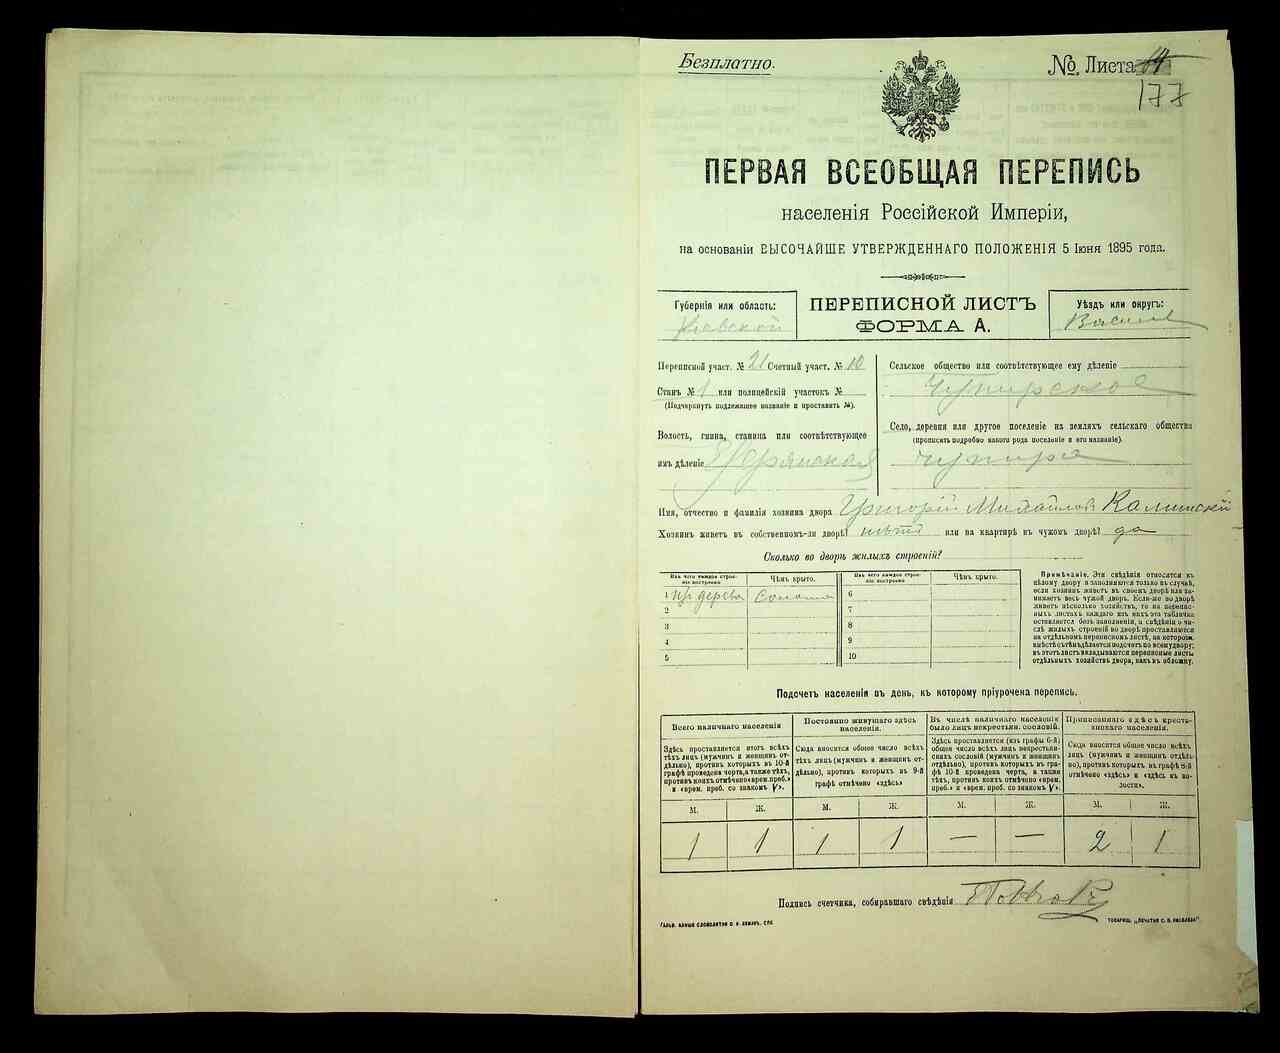 Безплатно.
№ Листа 14
177
ПЕРВАЯ ВСЕОБЩАЯ ПЕРЕПИСЬ
населенія Россійской Имперіи,
на основаніи ВЫСОЧАЙШЕ УТВЕРЖДЕННАГО ПОЛОЖЕНІЯ 5 Іюня 1895 года.
Губернія или область:
Кіевской
ПЕРЕПИСНОЙ ЛИСТЪ
ФОРМА А.
Уѣздъ или округъ:
Васильк
Переписной участ. № 21 Счетный участ. № 10
Станъ № 1 или полицейскій участокъ №
(Подчеркнуть подлежащее названіе и проставить №).
Волость, гмина, станица или соотвѣтствующее
имъ дѣленіе
Сельское общество или соотвѣтствующее ему дѣленіе
Чупирское
Село, деревня или другое поселеніе на земляхъ сельскаго общества
(прописать подробно какого рода поселеніе и его названіе).
Чупира
Имя, отчество и фамилія хозяина двора Григорій Михайлов Калинскій
Хозяинъ живетъ въ собственномъ-ли дворѣ? нѣтъ или на квартирѣ въ чужомъ дворѣ? да
Сколько во дворѣ жилыхъ строеній?
Изъ чего каждое строе-
ніе построено
Чѣмъ крыто.
Изъ чего каждое строе-
ніе построено
Чѣмъ крыто.
1 изъ дерева Солома 6
2 7
3 8
4 9
5 10
Примѣчаніе. Эти свѣдѣнія относятся къ
цѣлому двору и заполняются только въ случаѣ,
если хозяинъ живетъ въ своемъ дворѣ или за-
нимаетъ весь чужой дворъ. Если-же во дворѣ
живетъ нѣсколько хозяйствъ, то на перепис-
ныхъ листахъ каждаго изъ нихъ эта табличка
оставляется безъ заполненія, а свѣдѣнія о чи-
слѣ жилыхъ строеній во дворѣ проставляются
на отдѣльномъ переписномъ листѣ, на которомъ
вмѣстѣ съ тѣмъ дѣлается подсчетъ по всему двору;
въ этотъ листъ вкладываются переписные листы
отдѣльныхъ хозяйствъ двора, какъ въ обложку.
Подсчетъ населенія въ день, къ которому пріурочена перепись.
Всего наличнаго населенія
Здѣсь проставляется итогъ всѣхъ
тѣхъ лицъ (мужчинъ и женщинъ от-
дѣльно), противъ которыхъ въ 10-й
графѣ проведена черта, а также тѣхъ,
противъ коихъ отмѣчено «врем. преб.»
и «врем. преб. со знакомъ V».
Постоянно живущаго здѣсь
населенія.
Сюда вносится общее число всѣхъ
тѣхъ лицъ (мужчинъ и женщинъ от-
дѣльно), противъ которыхъ въ 9-й
графѣ отмѣчено «здѣсь»
Въ числѣ наличнаго населенія
было лицъ некрестьян. сословій.
Здѣсь проставляется (изъ графы 6-й)
общее число всѣхъ лицъ некрестьян-
скихъ сословій (мужчинъ и женщинъ
отдѣльно), противъ которыхъ въ гра-
фѣ 10-й проведена черта, а также
тѣхъ, противъ коихъ отмѣчено «врем.
преб.» и «врем. преб. со знакомъ V».
Приписаннаго здѣсь кресть-
янскаго населенія.
Сюда вносится общее число всѣхъ
лицъ (мужчинъ и женщинъ отдѣль-
но), противъ которыхъ въ графѣ 8-й
отмѣчено «здѣсь» и «здѣсь въ во-
лости».
М. Ж. М. Ж. М. Ж. М. Ж.
1 1 1 1 — — 2 1
Подпись счетчика, собиравшаго свѣдѣнія